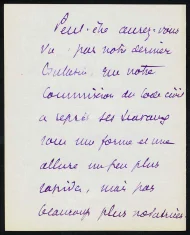 Peut-être aurez-vous
vu par notre dernier
que notre
Commission du Code civil
a repris ses travaux
sous une forme et une
allure un peu plus
rapides, mais pas
beaucoup plus